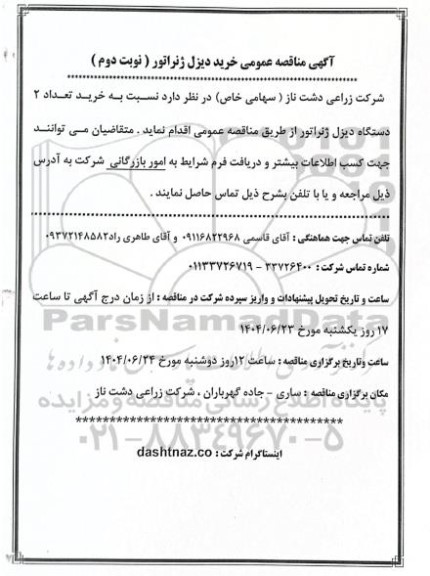 آگهی مناقصه عمومی خرید دیزل ژنراتور ( نوبت دوم )
شرکت زراعی دشت ناز ( سهامی خاص) در نظر دارد نسبت به خرید تعداد ۲
دستگاه دیزل ژنراتور از طریق مناقصه عمومی اقدام نماید . متقاضیان می توانند
جهت کسب اطلاعات بیشتر و دریافت فرم شرایط به امور بازرگانی شرکت به آدرس
ذیل مراجعه و یا با تلفن بشرح ذیل تماس حاصل نمایند .
تلفن تماس جهت هماهنگی : آقای قاسمی ۰۹۱۱۶۸۲۲۹۶۸ و آقای طاهری راد۰۹۳۷۲۱۴۸۵۸۲
شماره تماس شرکت : ۳۳۷۲۶۴۰۰ - ۰۱۱۳۳۷۲۶۷۱۹
ساعت و تاریخ تحویل پیشنهادات و واریز سپرده شرکت در مناقصه : از زمان درج آگهی تا ساعت
۱۷ روز یکشنبه مورخ ۱۴۰۴/۰۶/۲۳
ParsNamadData
ساعت وتاریخ برگزاری مناقصه : ساعت ۱۲روز دوشنبه مورخ ۱۴۰۴/۰۶/۲۴
مکان برگزاری مناقصه : ساری - جاده گهرباران ، شرکت زراعی دشت ناز .
پایگاه اطلاع رسانی مناقصه و مزایده
****************************************
۰۲۱-۸۸۳۴۹۶۷۰-۵
اینستاگرام شرکت : dashtnaz.co